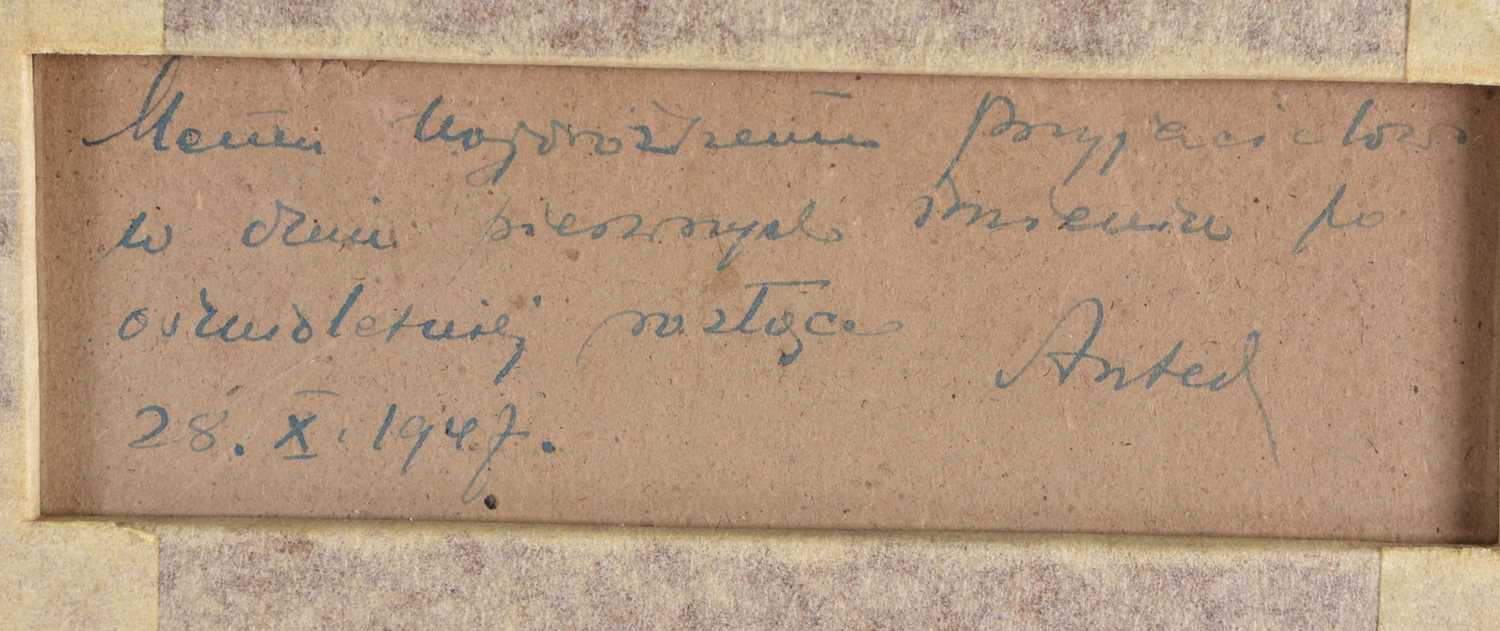 Memu najdroższemu przyjacielowi
w dniu pierwszych imienin po
ośmioletniej rozłące Antek
28. X. 1947.